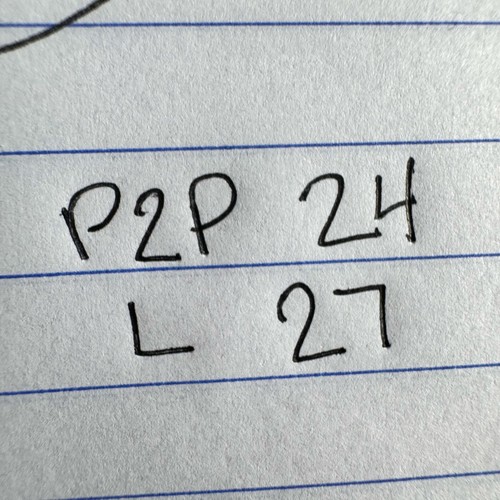 P2P 24
L 27